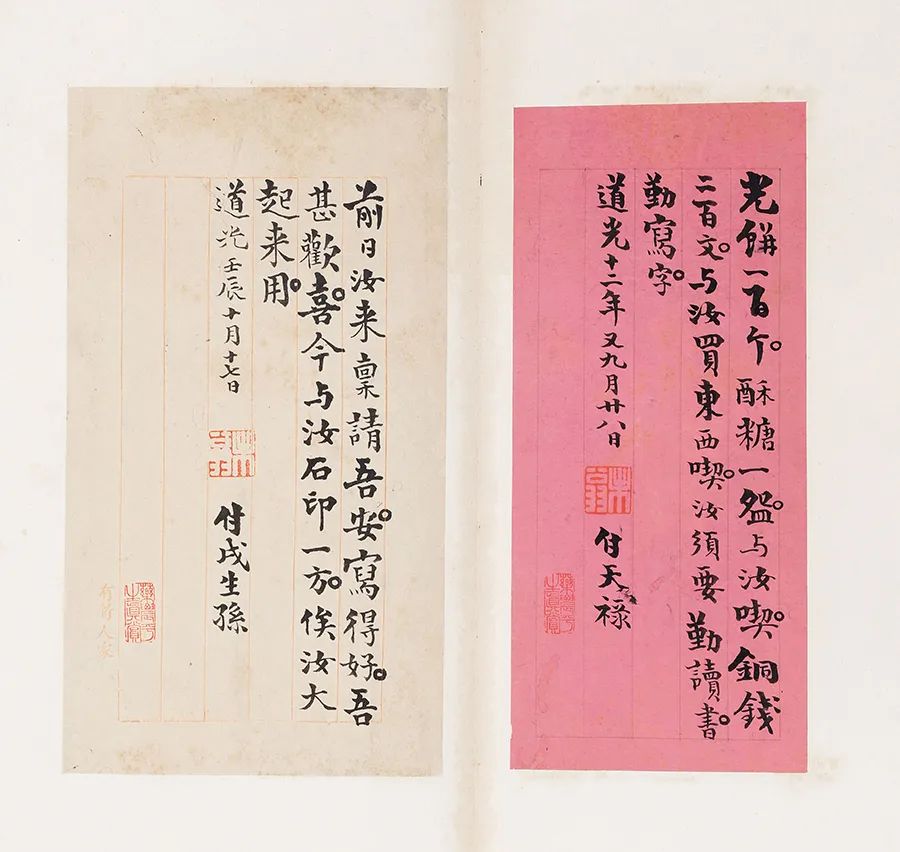 光餅一百个。酥糖一盌。与汝喫。銅錢
二百文。与汝買東西喫。汝須要勤讀書。
勤寫字。
道光十二年又九月廿八日
付天禄
前日汝来稟請吾安。寫得好。吾
甚歡喜。今与汝石印一方。俟汝大
起来用。
道光壬辰十月十七日
付戌生孫